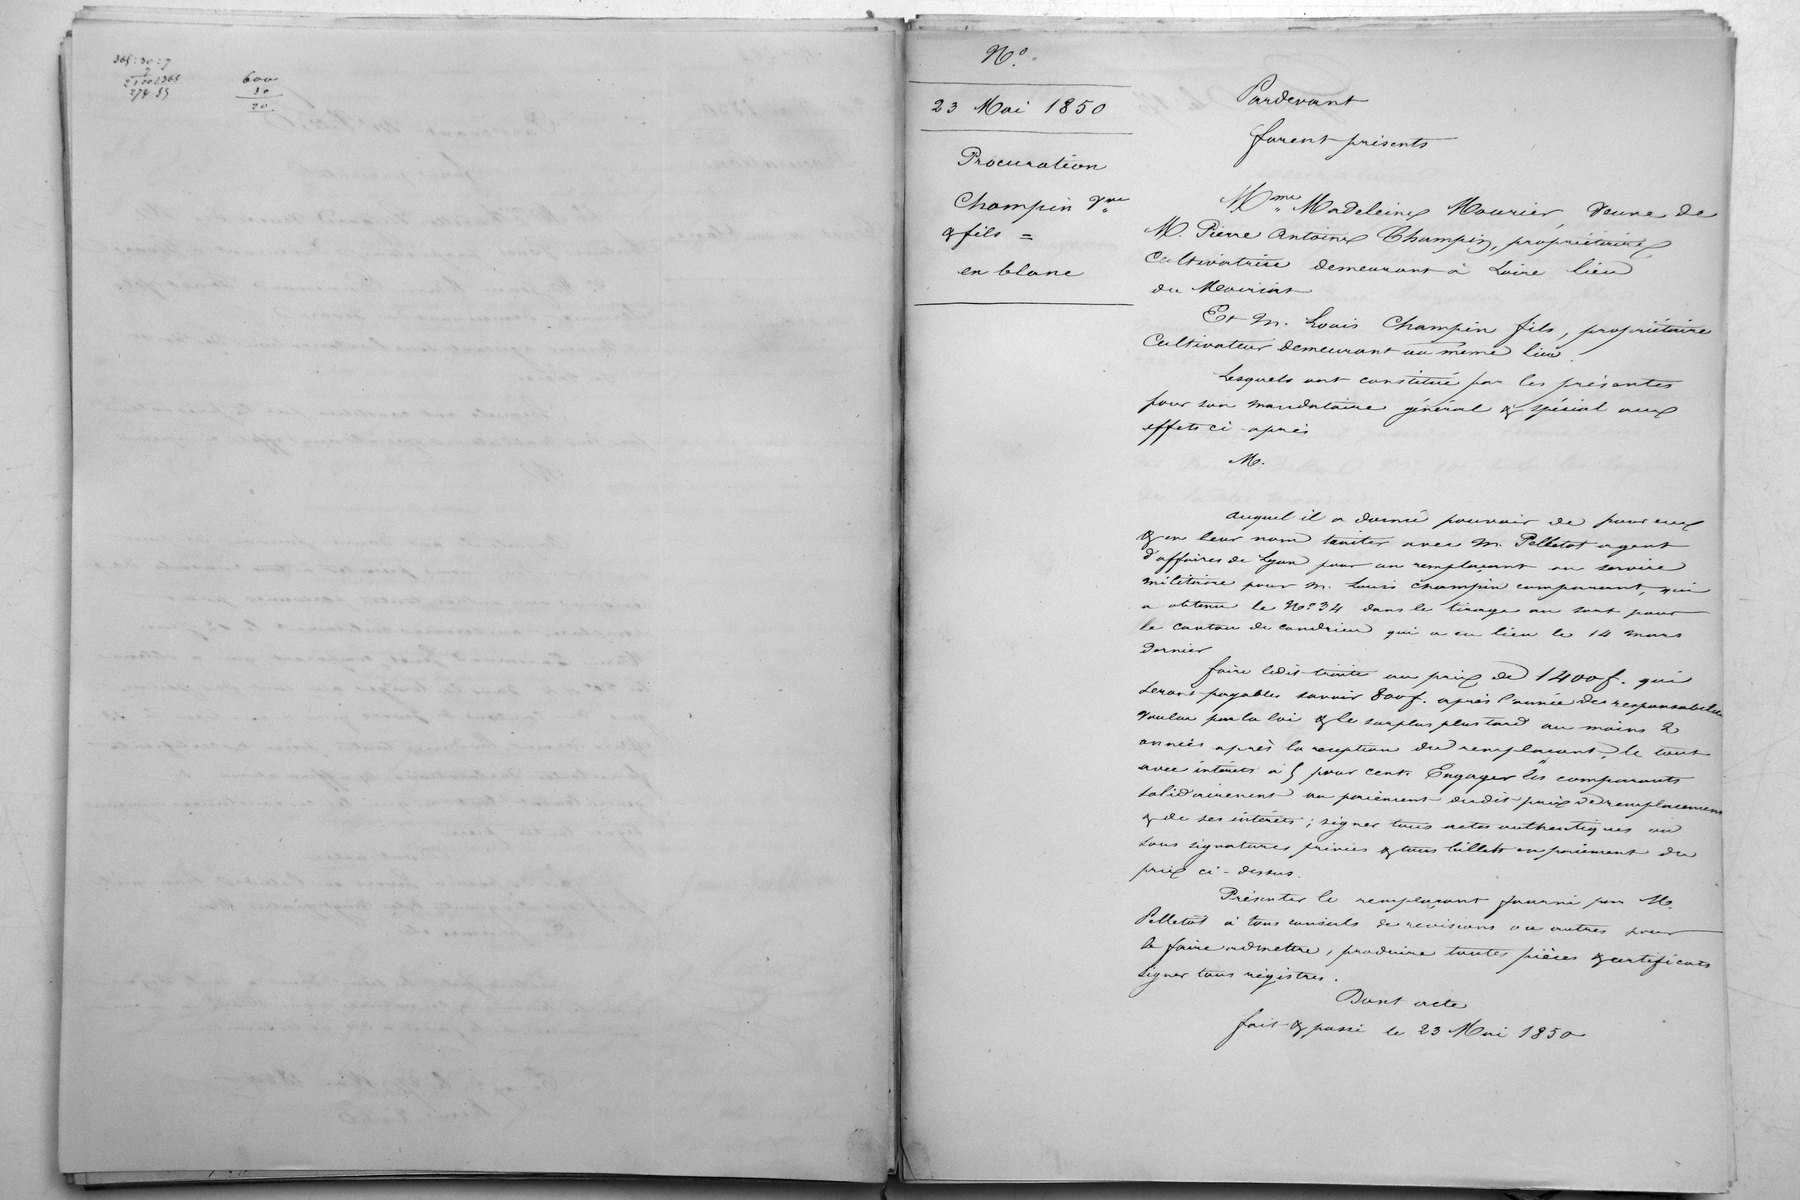 365:30:7
7
2100/365
274 55
600
30
20
N.º
23 Mai 1850
Procuration
Champin Vve
& fils =
en blanc
Pardevant
furent présents
Mme Madeleine Mourier Veuve de
M. Pierre Antoine Champin, propriétaire
Cultivatrice demeurant à Loire lieu
du
Et M. Louis Champin fils, propriétaire
Cultivateur demeurant au même lieu.
Lesquels ont constitué par les présentes
pour son mandataire général & spécial aux
effets ci-après
M.
auquel il a donné pouvoir de pour eux
& en leur nom traiter avec M. Pelletot agent
d'affaires de Lyon pour un remplaçant au service
militaire pour M. Louis Champin comparant, qui
a obtenu le Nº 34 dans le tirage au sort pour
le canton de Condrieu qui a eu lieu le 14 mars
dernier
faire ledit traité au prix de 1400f. qui
seront payables savoir 800f. après l'année de responsabilité
voulue par la loi & le surplus plus tard au moins 2
années après la reception du remplaçant, le tout
avec intérêts à 5 pour cent. Engager les comparants
solidairement au paiement dudit prix de remplacement
& de ses intérêts; signer tous actes authentiques ou
sous signatures privées & tous billets en paiement du
prix ci-dessus.
Présenter le remplaçant fourni par M.
Pelletot à tous conseils de revisions ou autres pour
le faire admettre, produire toutes pièces & certificats
signer tous régistres.
Dont acte
fait & passé le 23 Mai 1850